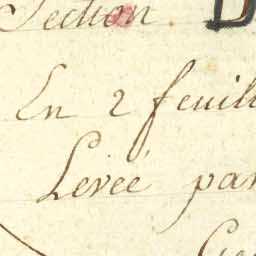 Section D
En 2 feuill
Levée par